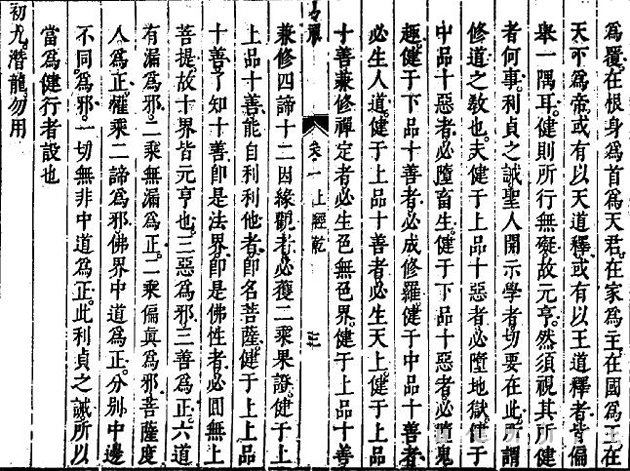 為覆。在恨身為首為天君。在家為主。在國為王。在
天下為帝或有以天道釋或有以王道釋者皆偏
舉一隅耳。健則所行無礙故元亨。然須視其所健
者何事。利貞之誡聖人開示學者切要在此。所謂
修道之教也。夫健于上品十惡者必墮地獄健于
中品十惡者必墮畜生。健于下品十惡者必墮鬼
趣。健于下品十善者必成修羅健于中品十善者
必生人道。健于上品十善者必生天上。健于上品
十善兼修禪定者必生色無色界。健于上品十善
卷一 上經乾 三
兼修四諦十二因緣觀者必獲二乘果證。健于上
上品十善。能自利利他者。即名菩薩。健于上上品
十善了知十善即是法界。即是佛性者必圓無上
菩提故十界皆元亨也。三惡為邪三善為正。六道
有漏為邪。二乘無漏為正。二乘偏真為邪菩薩度
人為正。權乘二諦為邪。佛界中道為正。分別中邊
不同為邪。一切無非中道為正。此利貞之誡所以
當為健行者設也
初九。潛龍勿用